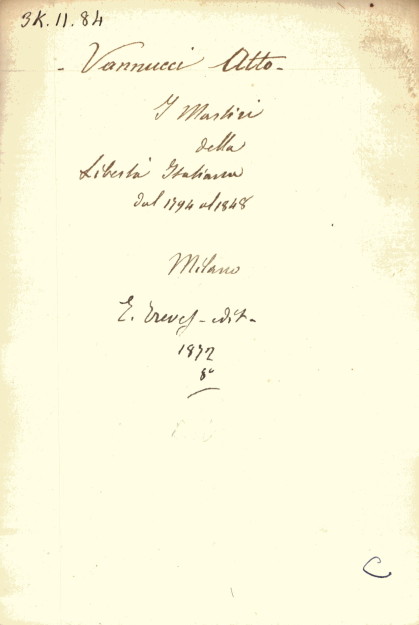 3K.11.84
- Vannucci Atto -
I Martiri
della
Libertà Italiana
dal 1794 al 1848
Milano
E. Treves - edit -
1872
8°
C